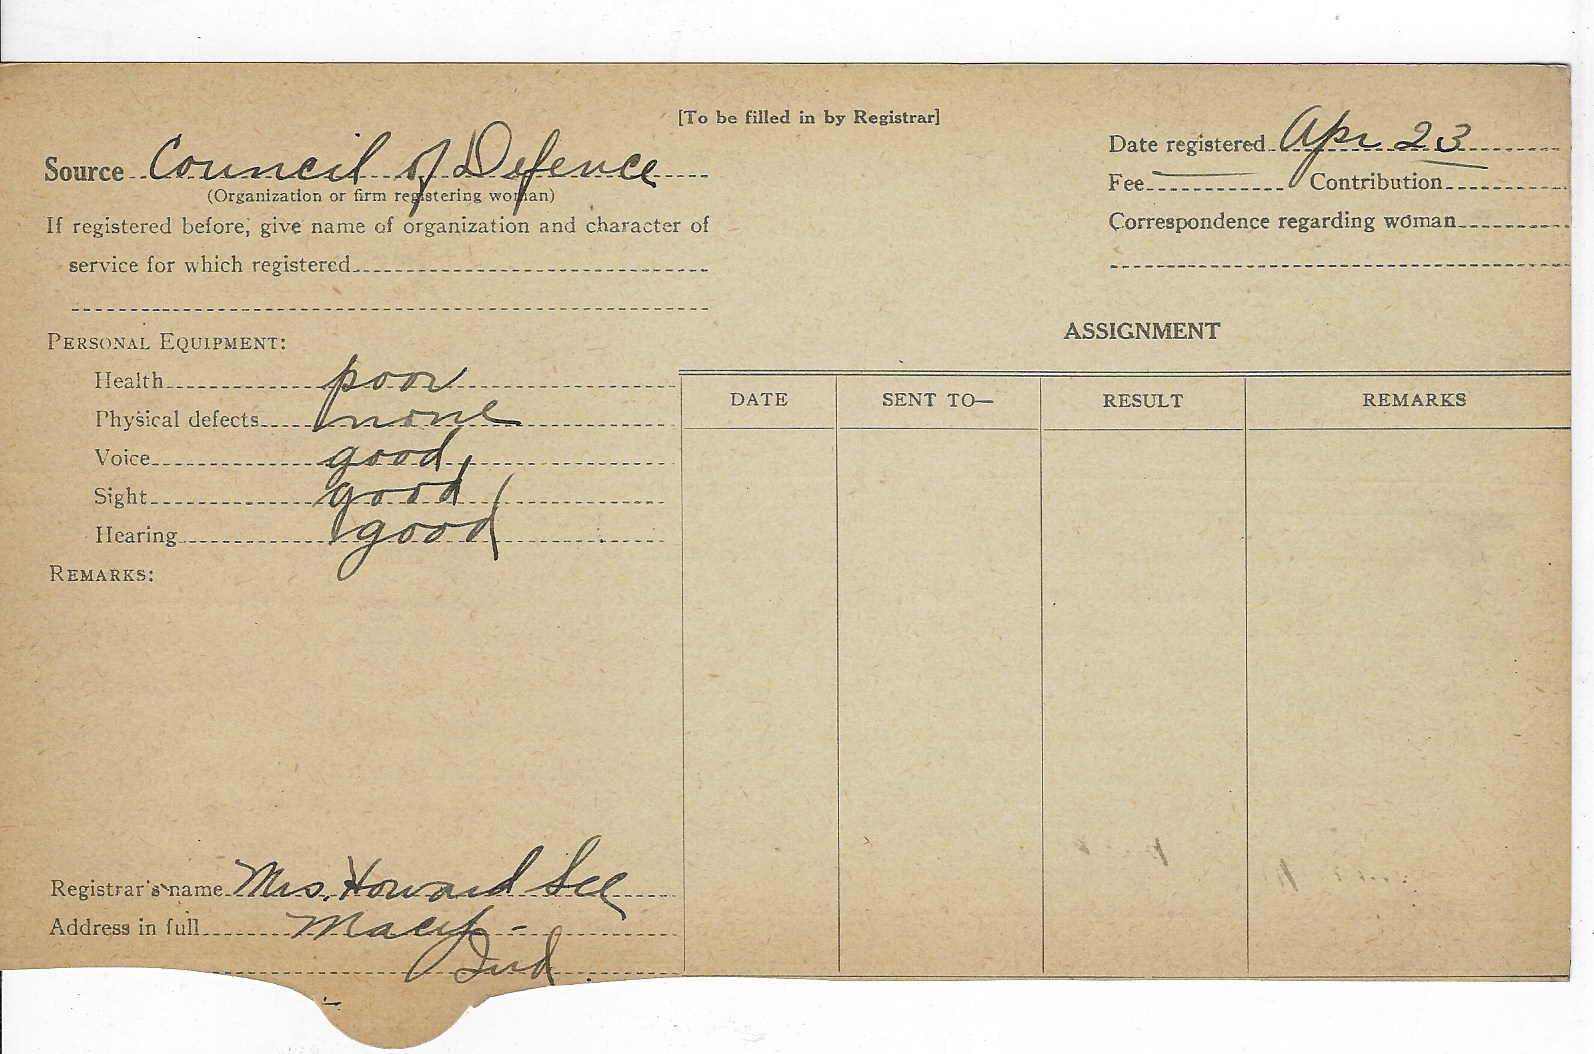 [To be filled in by Registrar]
Source Council of Defence
(Organization or firm registering woman)
If registered before, give name of organization and character of
service for which registered
PERSONAL EQUIPMENT:
Health poor
Physical defects none
Voice good
Sight good
Hearing good
REMARKS:
Registrar's name Mrs. Howard See
Address in full Macy -
Ind.
Date registered Apr 23
Fee Contribution
Correspondence regarding woman
ASSIGNMENT
DATE SENT TO— RESULT REMARKS